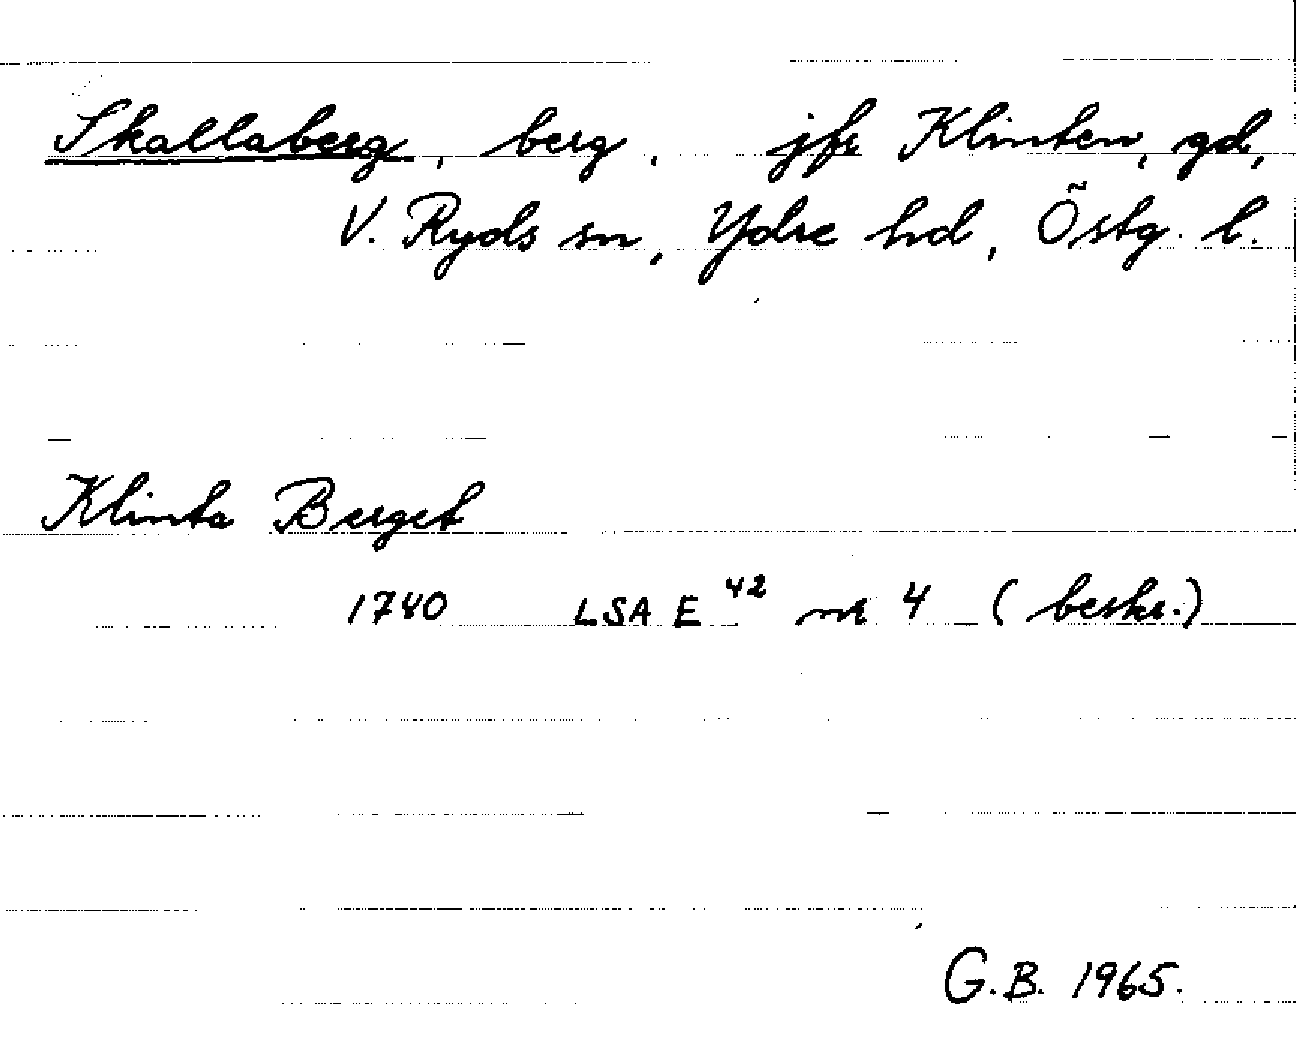 Skallaberg, berg. jfr Klinten, gd,
V. Ryds sn, Ydre hd, Östg. l.
Klinta Berget
1740 LSA E 42 nr 4 (beskr.)
G.B. 1965.